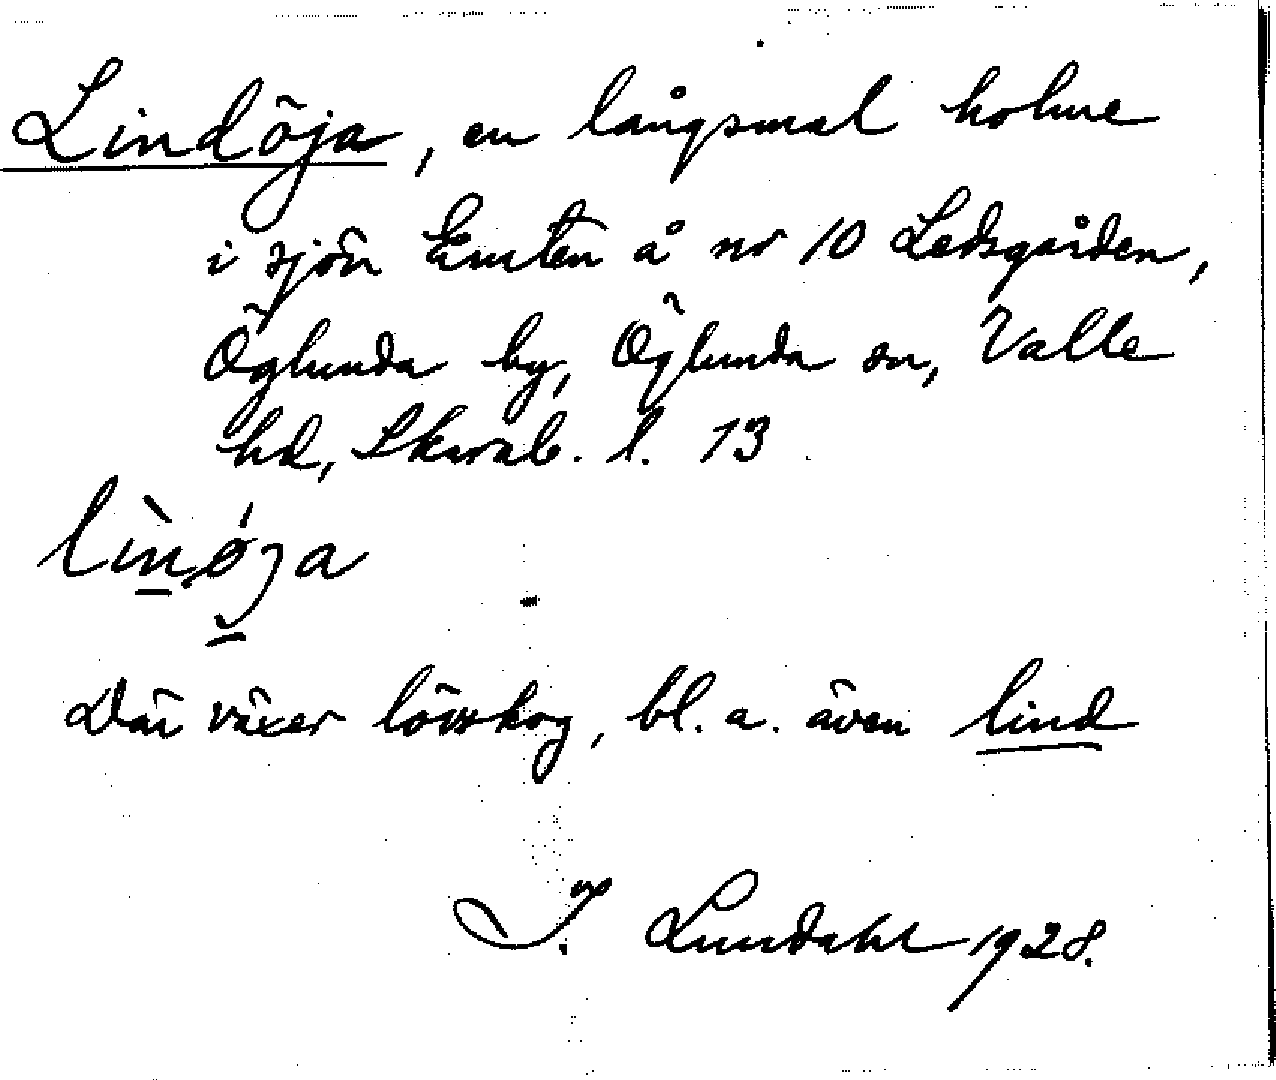 Lindöja, en långsmal holme
i sjön Emten å nr 10 Ledsgården,
Öglunda by, Öglunda sn, Valle
hd, Skarab. l. 13
lìnója
Där växer lövskog, bl. a. även lind
I. Lundahl 1928.